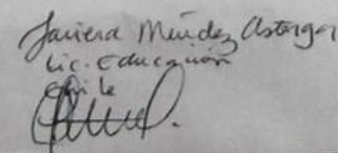 Javiera Méndez Astorga
Lic. Educación
Chile